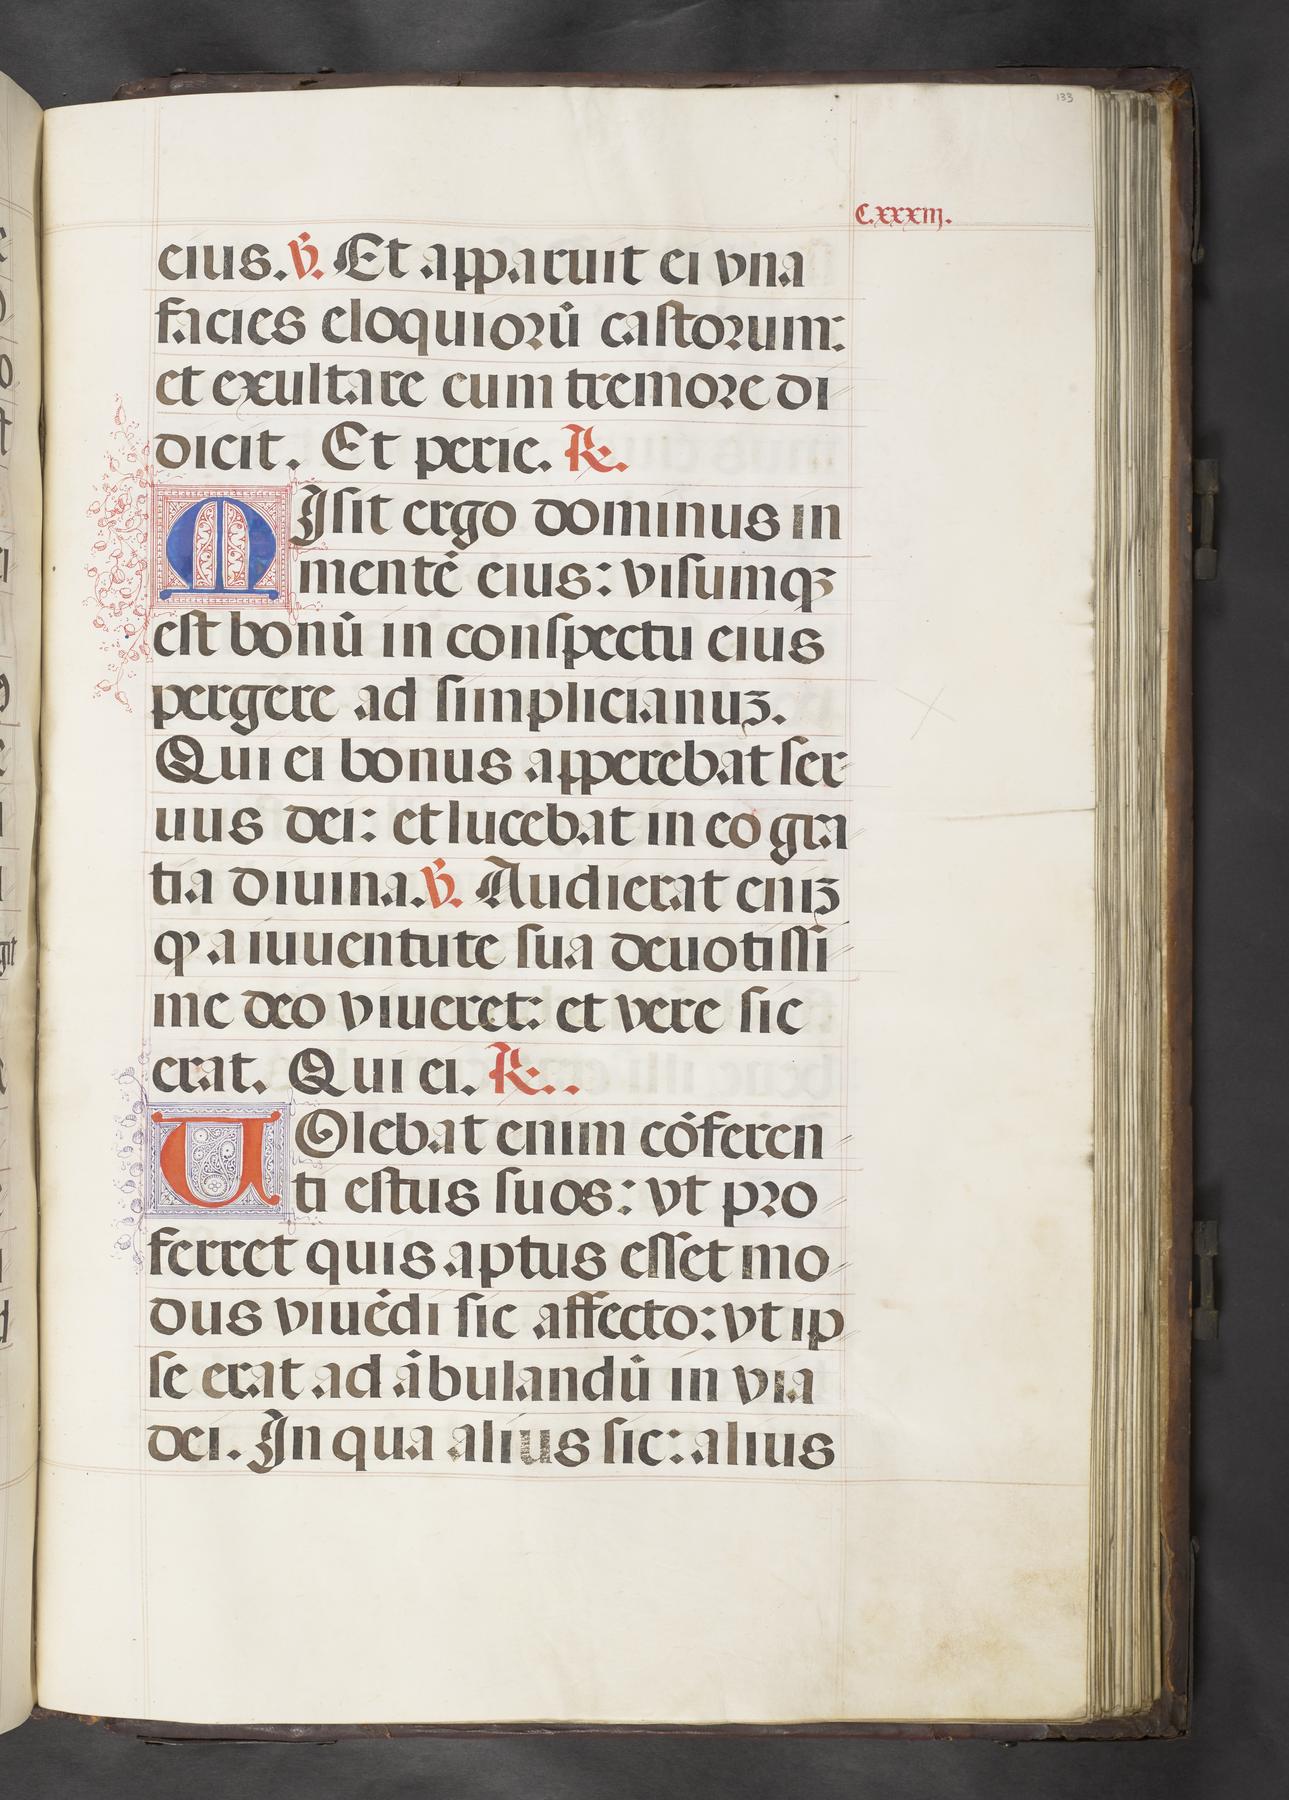 133
C.xxxiij.
eius. ℣. Et apparuit ei vna
facies eloquiorū castorum:
et exultare cum tremore di
dicit. Et perie. ℟.
MIsit ergo dominus in
mentē eius: visumqꝫ
est bonū in conspectu eius
pergere ad simplicianuꝫ.
Qui ei bonus apperebat ser
uus dei: et lucebat in eo gra
tia diuina. ℣. Audierat eniꝫ
qꝫ a iuuentute sua deuotissi
me deo viueret: et vere sic
erat. Qui ei. ℟..
UOlebat enim cōferen
ti estus suos: vt pro
ferret quis aptus esset mo
dus viuēdi sic affecto: vt ip
se erat ad ābulandū in via
dei. In qua alius sic: alius